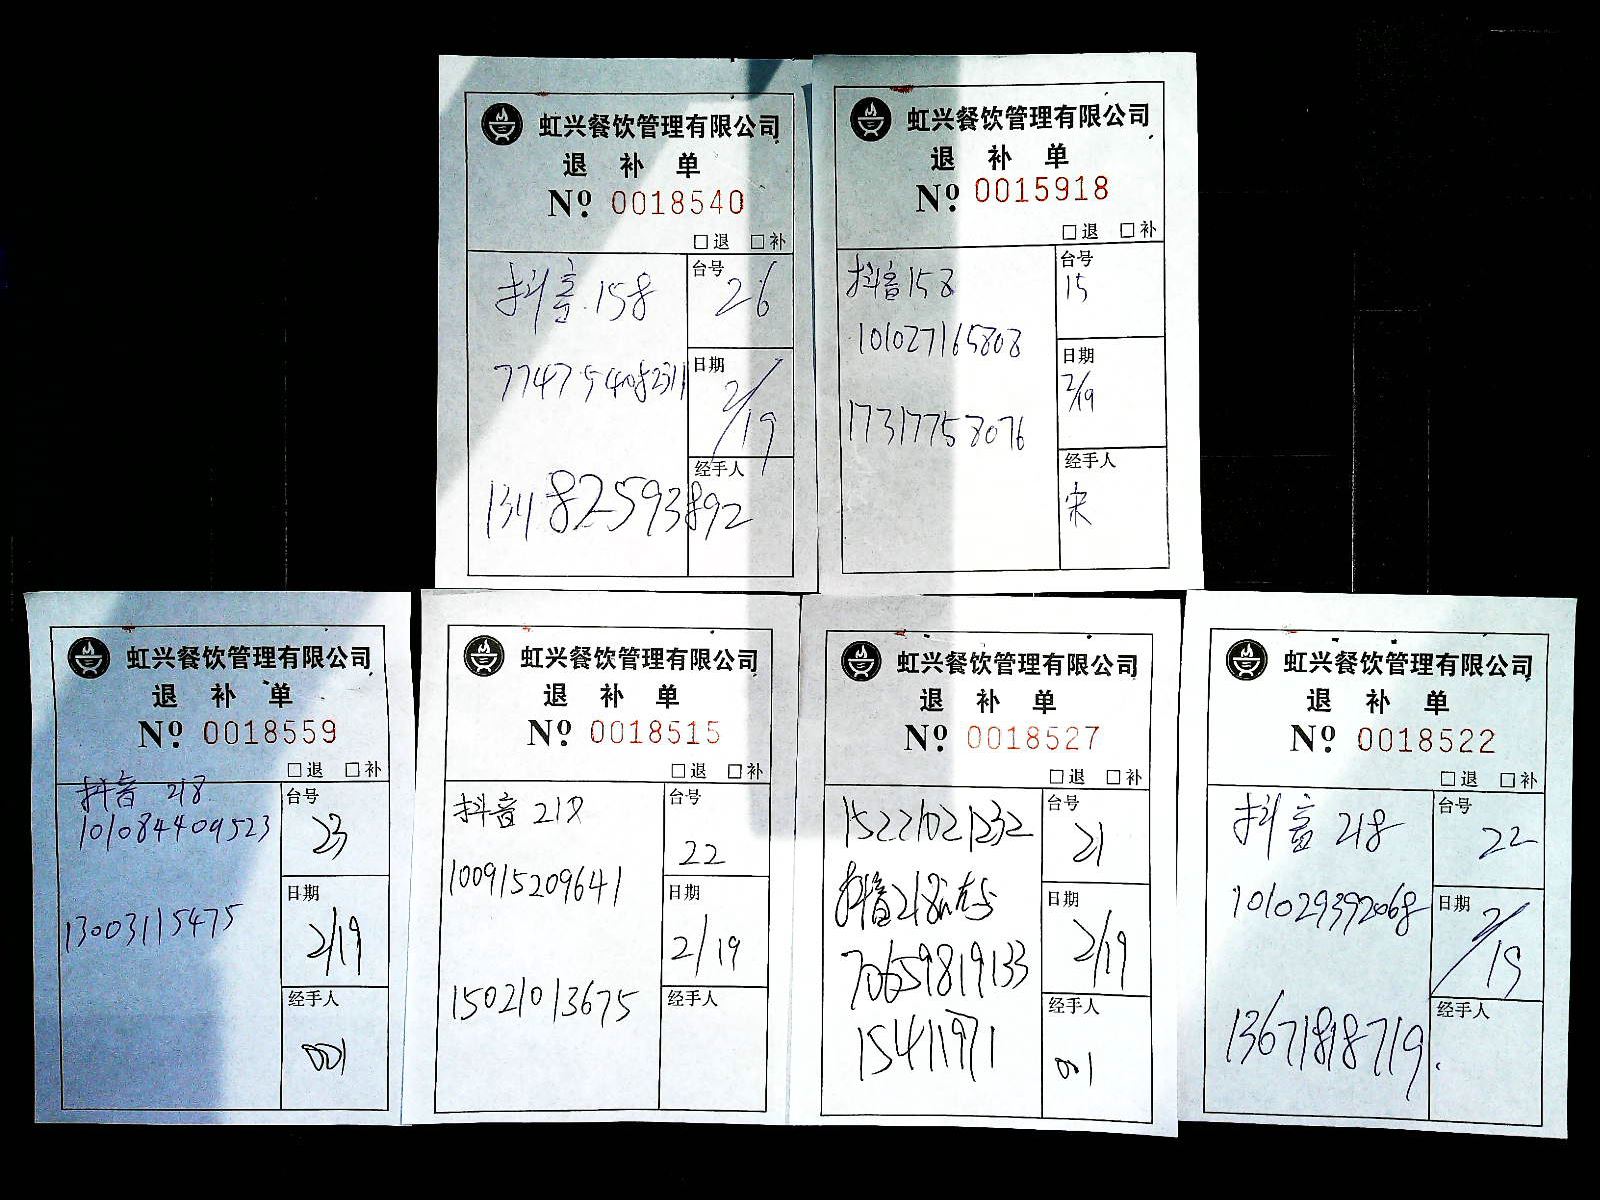 虹兴餐饮管理有限公司
退 补 单
Nº. 0018540
□退 □补
抖音.158
台号
26
774754082311
日期
2/19
经手人
13482593892
虹兴餐饮管理有限公司
退 补 单
Nº. 0015918
□退 □补
抖音158
台号
15
101027165808
日期
2/19
17317758076
经手人
宋
虹兴餐饮管理有限公司
退 补 单
Nº. 0018559
□退 □补
抖音 218
101084409523
台号
23
日期
2/19
13003115475
经手人
001
虹兴餐饮管理有限公司
退 补 单
Nº. 0018515
□退 □补
抖音 218
台号
22
100915209641
日期
2/19
15021013675
经手人
虹兴餐饮管理有限公司
退 补 单
Nº. 0018527
□退 □补
15221021232
台号
21
抖音218
日期
2/19
70659819133
15411971
经手人
001
虹兴餐饮管理有限公司
退 补 单
Nº. 0018522
□退 □补
抖音 218
台号
22
101029392068
日期
2/19
经手人
13671818719.